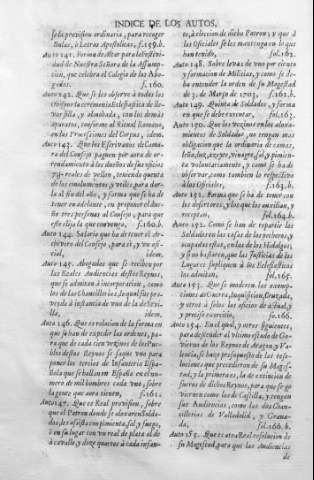 INDICE DE LOS AUTOS,
se la prevision ordinaria, para recoger
Bulas, ò Letras Apostolicas, f.159.b.
Auto 141. Forma de la Festividad
de Nuestra Señora de la Assump-
cion, que celebra el Colegio de los Abo-
gados. f.160.
Auto 142. Que se les observe à todos los
la ceremonia Eclesiastica de lle-
var silla, y almohada, en los demàs
conforme al Ritual Romano,
en las Processiones del Corpus, idem.
Auto 143. Que los Escrivanos de Cama-
ra del Consejo paguen por aora de ar-
rendamiento à los dueños de los oficios
reales de vellon, teniendo quenta
de los emolumentos, y
al fin del año, y forma que se ha de
tener en adelante, en proponer el due-
ño tres personas al Consejo, para que
elija la que convenga, f.160.b.
Auto 144. Salario que ha de tener el Ar-
chivero del Consejo, para sì, y un ofi-
cial, idem.
Auto 145. Abogados que se reciben por
las Reales Audiencias destos Reynos,
que se admitan à incorporacion, como
los de las Chancillerias, lo qual sus pre-
veìdo à instancia de una de la de Sevi-
lla, idem.
Auto 146. La relacion de la forma en
que se han de expedir las ordenes, pa-
ra que de cada cien vezinos de los Pue-
blos destos Reynos se saque uno para
poner los tercios de Infanteria Espa-
ñola que se hallan en España en el nu-
mero de mil hombres cada uno, sobre
la gente que aora tienen, f.161.
Auto 147. Que es Real provision, sobre
que el Patron donde se aloxaren Solda-
dos, les assista con pimienta, sal, y fuego,
ò en su lugar con un real de plata al de
à cavallo, y doze quartos à cada infan-
te, à eleccion de dicho Patron; y que à
los Oficiales se les mantenga en lo que
han tenido, fol.162.
Auto 148. Sobre levas de uno por ciento
y formacion de Milicias, y como se de-
ba entender la orden de su Magestad
de 3. de Março de 1703. fol.162.b.
Auto 149. Quinta de Soldados, y forma
en que se debe executar, fol.163.
Auto 150. Que los vezinos en los aloxa-
mientos de Soldados, no tengan mas
obligacion que la ordinaria de camas,
leña, luz, azeyte, vinagre, sal, y pimien-
ta voluntariamente, y como se ha de
observar, como tambien lo respectivo
à los Eclesiasticos, f.163.b.
Auto 151. Forma que se ha de tener con
los desertores, y los que los auxilian, y
receptan, fol.164.
Auto 152. Como se han de repartir los
Soldados en las casas de los pecheros, y
ocupadas estas, en las de los Hidalgos,
y si no bastaren, que las Justicias de los
Lugares supliquen à los Eclesiasticos
los admitan, fol.165.
Auto 153. Que se moderen las exemp-
ciones de Cruzada,
y otros à solos los oficios de actual, y
y preciso exercicio, fo.166.
Auto 154. En el qual, y otros siguientes,
para descender al ultimo estado de Go-
vierno de los Reynos de Aragon, y Va-
lencia, se haze presupuesto de las reso-
luciones que precedieron de su Mages-
tad, y la primera es, la de extincion de
fueros de dichos Reynos, para que se go-
viernen como los de Castilla, y tengan
sus Audiencias, como las dos Chan-
cillerias de Valladolid, y Grana-
da, fol.166.b.
Auto 155. Que es otra Real resolucion de
su Magestad, para que las Audiencias
de